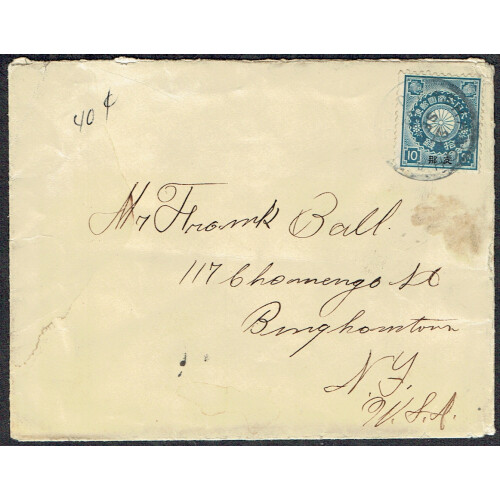 40¢
10
支那
拾錢
Mr Frank Ball.
117 Chenango St
Binghamton
N.Y.
U.S.A.